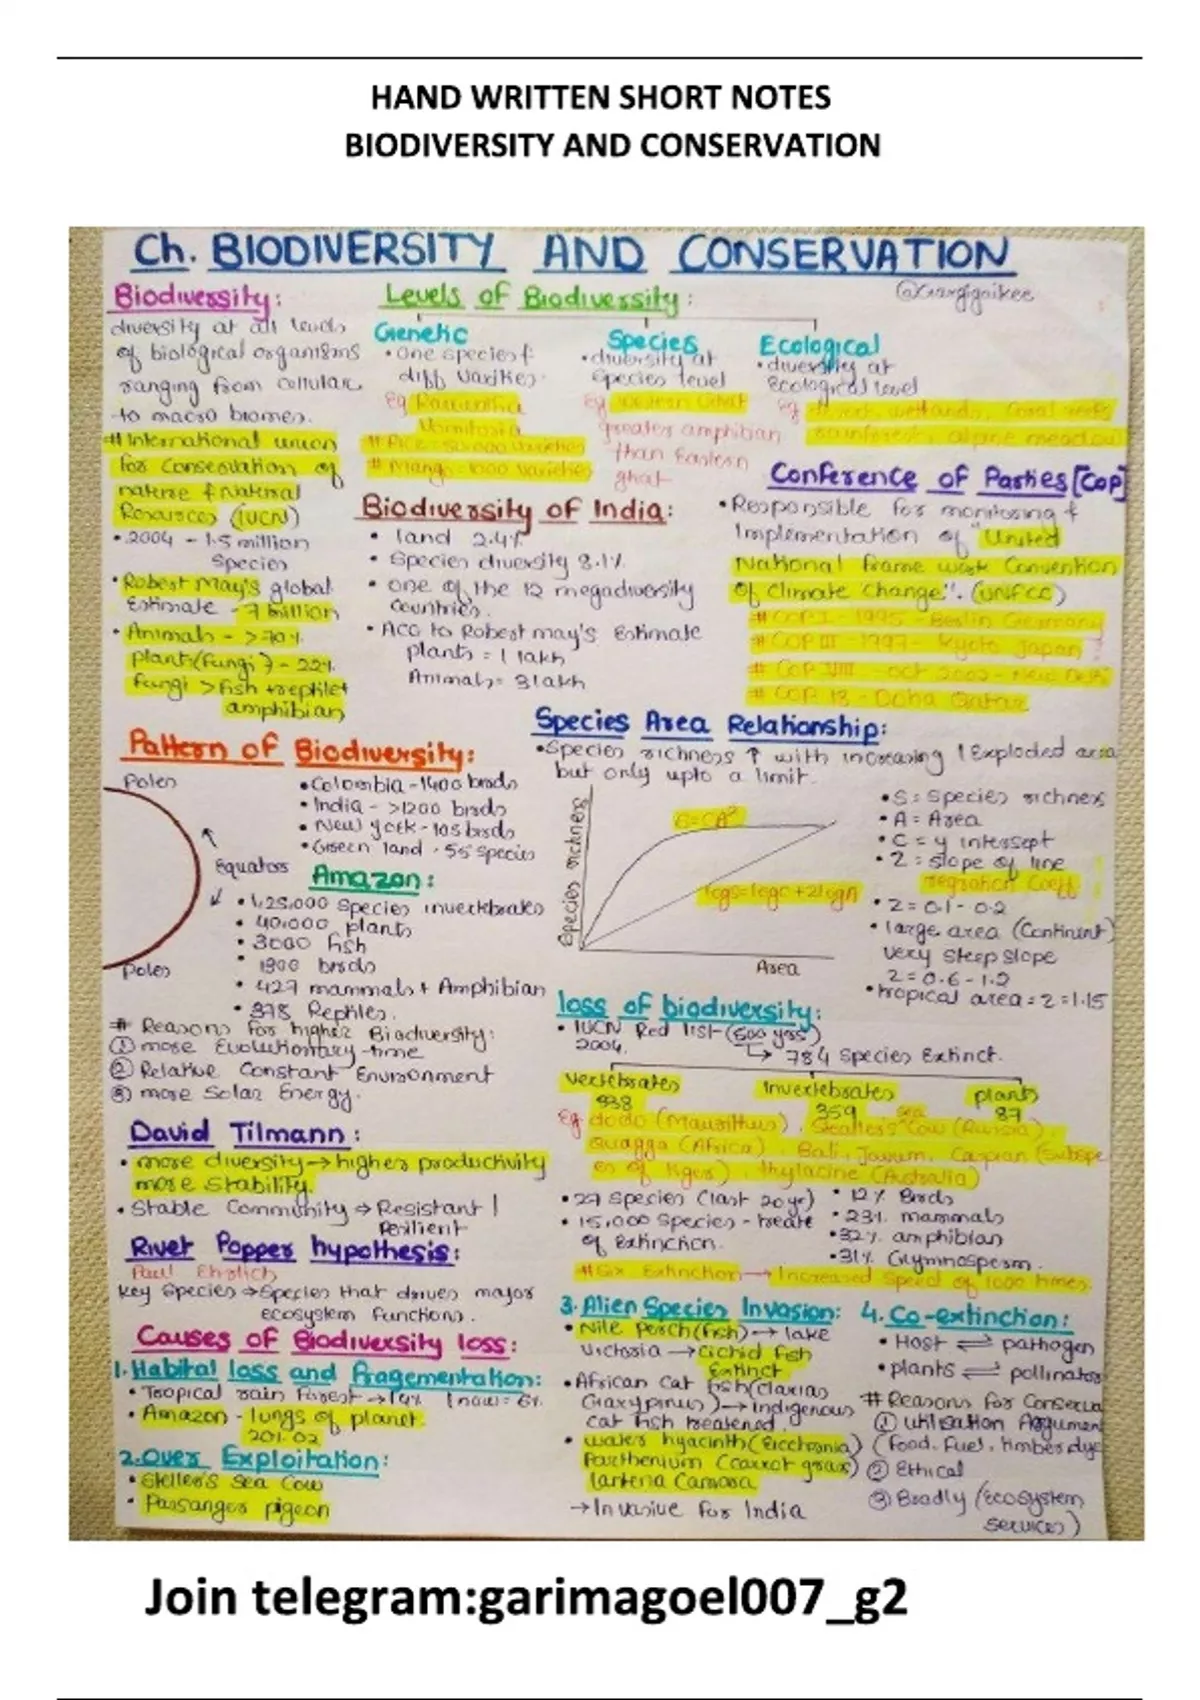 HAND WRITTEN SHORT NOTES
BIODIVERSITY AND CONSERVATION
Ch. BIODIVERSITY AND CONSERVATION
Biodiversity:
diversity at all levels
of biological organisms
ranging from cellular
to macro biomes.
# International union
for Conservation of
nature & Natural
Resources (IUCN)
• 2004 - 1.5 million
species
• Robert May's global
Estimate - 7 million
• Animals - >70%
plants (fungi) - 22%
fungi > fish + reptile +
amphibian
Levels of Biodiversity:
Genetic
• one species &
diff varities.
Eg Rauwolfia
Vomitoria
# Rice = 50,000 Varieties
# Mango = 1000 Varieties
Species
• diversity at
species level
Eg Western Ghat
greater amphibian
than Eastern
ghat
Ecological
• diversity at
Ecological level
Eg desert, wetlands, Coral reefs
rainforests, alpine meadow
Biodiversity of India:
• land 2.4%
• Species diversity 8.1%
• one of the 12 megadiversity
countries.
• Acc to Robert may's Estimate
plants = 1 lakh
Animals = 3 lakh
Conference of Parties [COP]
• Responsible for monitoring &
Implementation of "United
National frame work Convention
of climate change". (UNFCC)
# COP I - 1995 - Berlin Germany
# COP III - 1997 - Kyoto Japan
# COP VIII - oct 2002 - New Delhi
# COP 18 - Doha Qatar
Pattern of Biodiversity:
Poles
Equators
Poles
• Colombia - 1400 birds
• India - >1200 birds
• New york - 105 birds
• Green land - 55 species
Amazon:
• 1,25,000 species invertebrates
• 40,000 plants
• 3000 fish
• 1300 birds
• 427 mammals + Amphibian
• 378 Reptiles.
# Reasons for higher Biodiversity:
① more Evolutionary time
② Relative Constant Environment
③ more Solar Energy.
Species Area Relationship:
• Species richness ↑ with increasing / Exploded area
but only upto a limit.
Species richness
S=CA^Z
logs=logc+zlogA
Area
• S = Species richness
• A = Area
• C = y intersept
• Z = slope of line
regration Coeff
• Z = 0.1 - 0.2
• large area (Continent)
very steep slope
Z = 0.6 - 1.2
• tropical area = Z = 1.15
David Tilmann:
• more diversity → higher productivity
more stability.
• Stable Community → Resistant /
Resilient
River Popper hypothesis:
Paul Ehrlich
key species → Species that drives major
ecosystem functions.
loss of biodiversity:
• IUCN Red list - (500 yrs)
2004.
↳ 784 species Extinct.
vertebrates
338
Invertebrates
359
plants
87
Eg dodo (Mauritius), Steller's sea Cow (Russia)
quagga (Africa), Bali, Javan, Caspian (Subspe
es of tiger), thylacine (Australia)
• 27 species (last 20 yr)
• 15,000 species - treate
of Extinction.
• 12% Birds
• 23% mammals
• 32% amphibian
• 31% Gymnosperm.
# Six Extinction → Increased speed of 1000 times.
Causes of Biodiversity loss:
1. Habital loss and Fragementation:
• Tropical rain forest → 14% / now = 6%
• Amazon - lungs of planet.
20% O2
2. Over Exploitation:
• Steller's Sea Cow
• Passanger pigeon
3. Alien Species Invasion:
• Nile Perch (fish) → lake
Victoria → Cichid fish
Extinct
• African Cat fish (Clarias
Garypinus) → indigenous
cat fish treatened.
• water hyacinth (Eicchornia)
Parthenium (Carrot grass)
lantena Camara
→ Invasive for India
4. Co-extinction:
• Host ⇌ pathogen
• plants ⇌ pollinator
# Reasons for Conserva
① utilisation Argument
(food, fuel, timber dye
② Ethical
③ Bradly (Ecosystem
services)
Join telegram:garimagoel007_g2